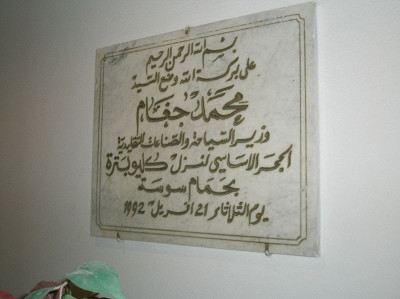 بسم الله الرحمن الرحيم
على بركة الله وضع السيد
محمد جغام
وزير السياحة والصناعات التقليدية
الحجر الاساسي لنزل كليوبترة
بحمام سوسة
يوم الثلاثاء 21 افريل 1992